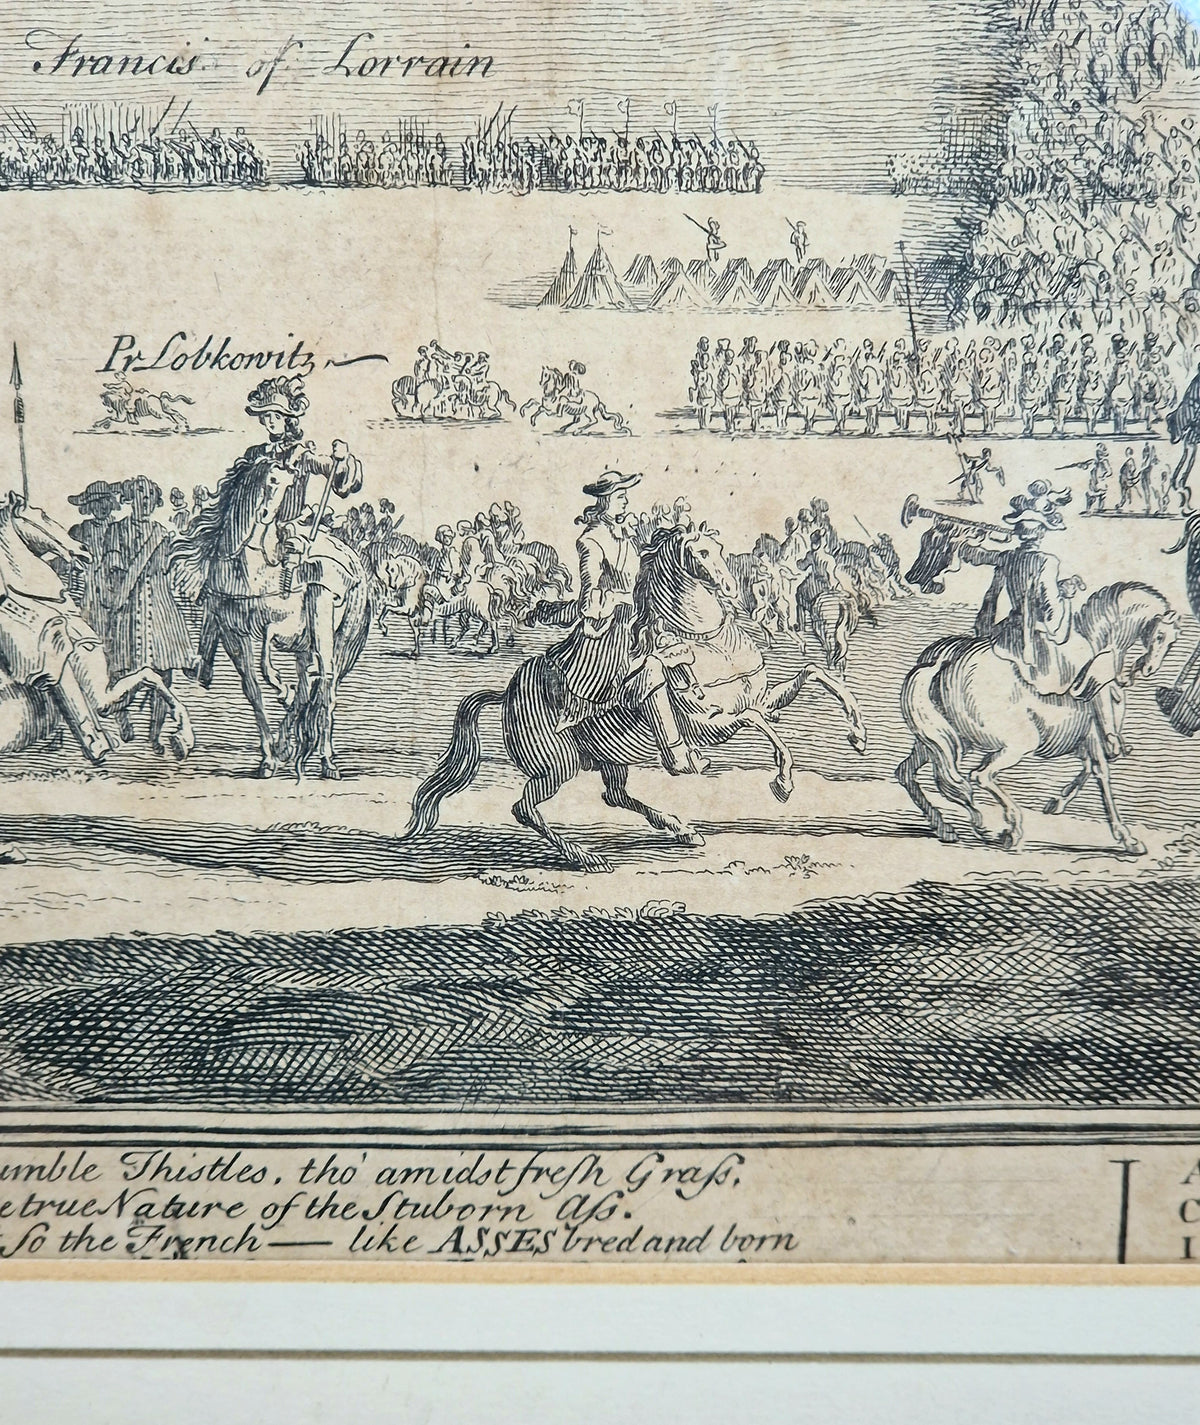 Francis of Lorrain
Pr Lobkowitz
umble Thistles, tho' amidst fresh Grass,
e true Nature of the Stuborn Ass.
So the French — like ASSES bred and born
I
A
C
I